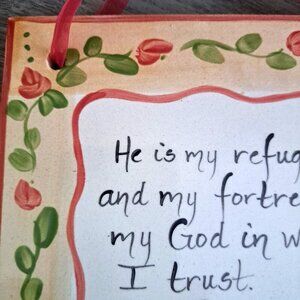 He is my refug
and my fortre
my God in w
I trust.